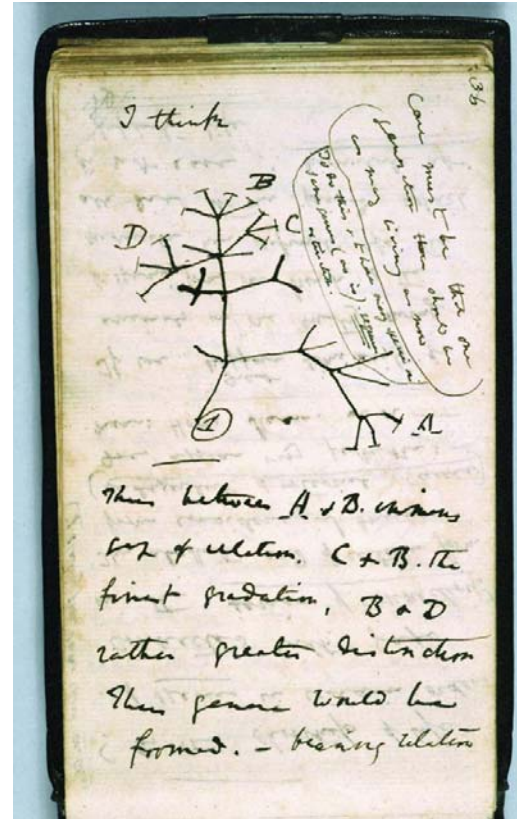 36
I think
Case must be that one
generation then should be
as many living as now
To do this & to have many species in
same genus (as is) requires
extinction.
B
C
D
A
1
Thus between A & B. immense
gap of relation. C & B. the
finest gradation, B & D
rather greater distinction
Thus genera would be
formed. – bearing relation